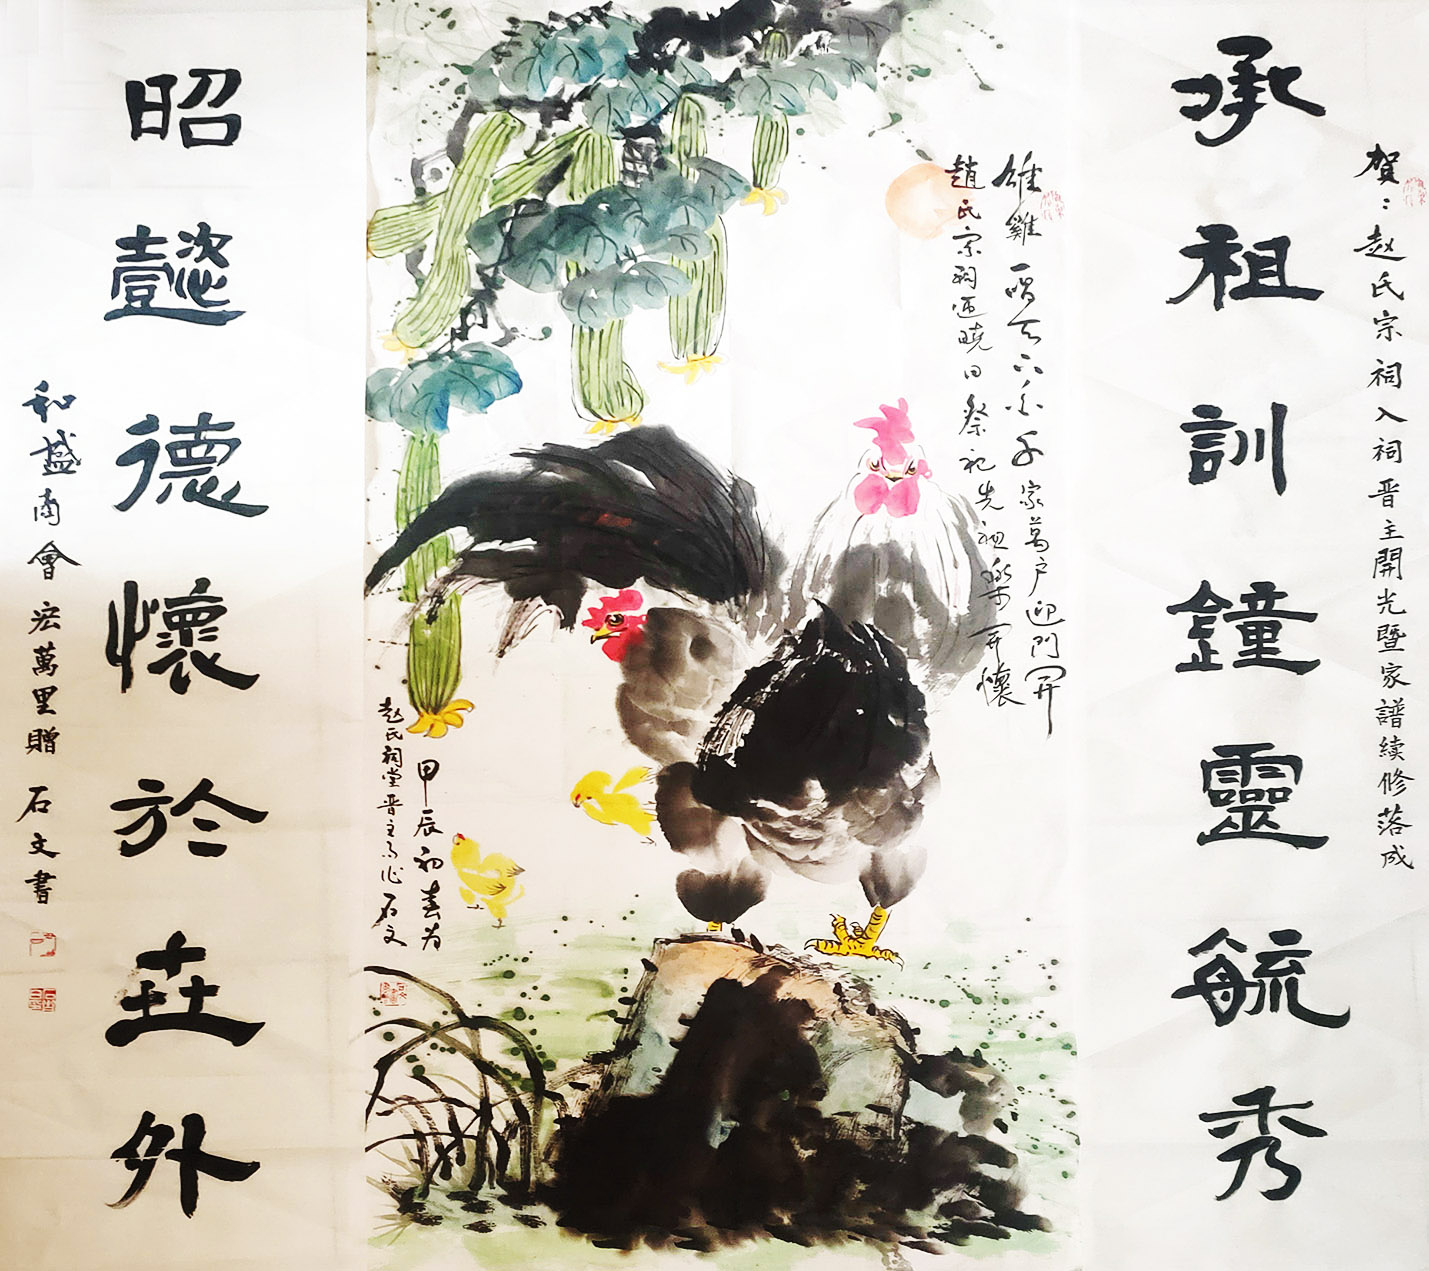 贺：赵氏宗祠入祠晋主開光暨家譜續修落成
承祖訓鐘靈毓秀
雄雞一唱天下千家萬户迎門開
趙氏宗祠迎曉日祭祀先祖樂開懷
甲辰初春为
赵氏祠堂晋主而作 石文
昭懿德懷於外
和盛商會宏萬里贈 石文書